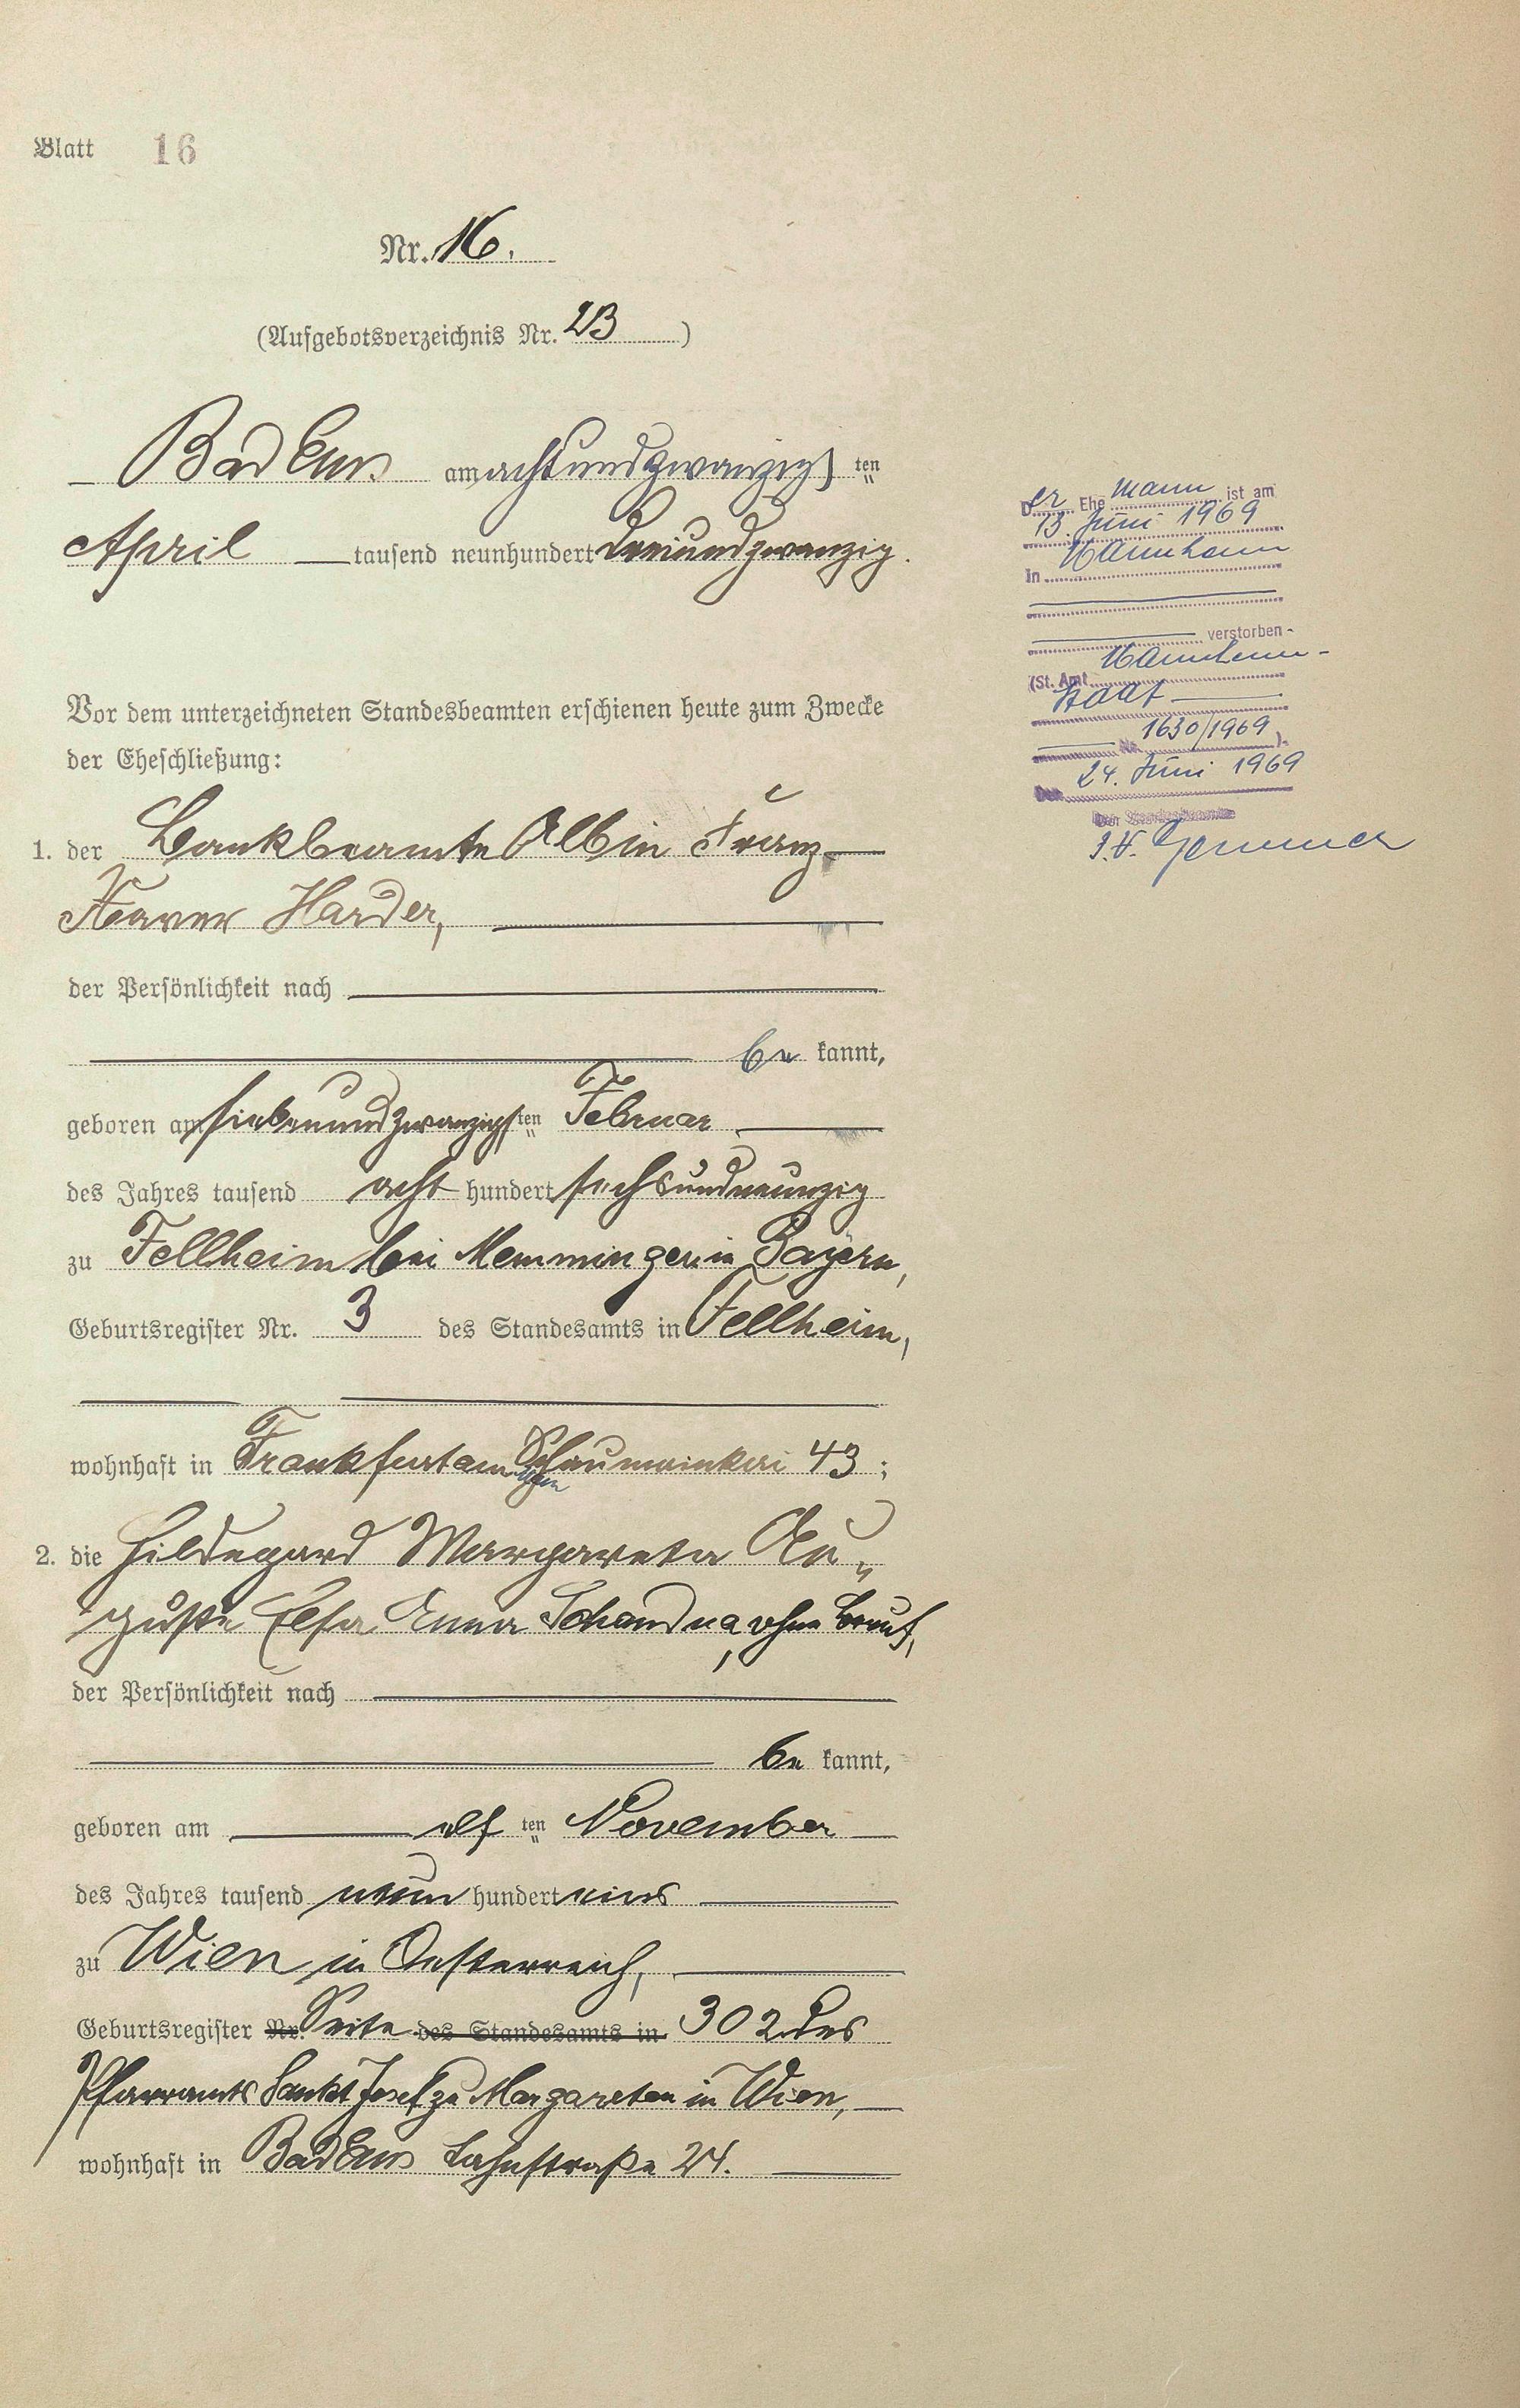 Blatt 16
Nr. 16.
(Aufgebotsverzeichnis Nr. 23)
Bad Ems am achtundzwanzigsten
April tausend neunhundert dreiundzwanzig.
Vor dem unterzeichneten Standesbeamten erschienen heute zum Zwecke
der Eheschließung:
1. der Bankbeamte Albin Franz
Xaver Harder,
der Persönlichkeit nach
be kannt,
geboren am siebenundzwanzigsten Februar
des Jahres tausend acht hundert sechsundneunzig
zu Fellheim bei Memmingen in Bayern,
Geburtsregister Nr. 3 des Standesamts in Fellheim,
wohnhaft in Frankfurt am Main Schaumainkai 43;
2. die Hildegard Margareta Au„
guste Elsa Anna Schandua, ohne Beruf,
der Persönlichkeit nach
be kannt,
geboren am elf ten November
des Jahres tausend neun hundert eins
zu Wien in Oesterreich,
Geburtsregister Nr. Seite des Standesamts in 302 des
Pfarramts Sankt Josef zu Margareten in Wien,
wohnhaft in Bad Ems Lahnstraße 24.
Der Ehe mann ist am
13. Juni 1969
In Mannheim
verstorben -
(St. Amt Mannheim-
Stadt
Nr. 1630/1969).
Den 24. Juni 1969
Der Standesbeamte
I.V.